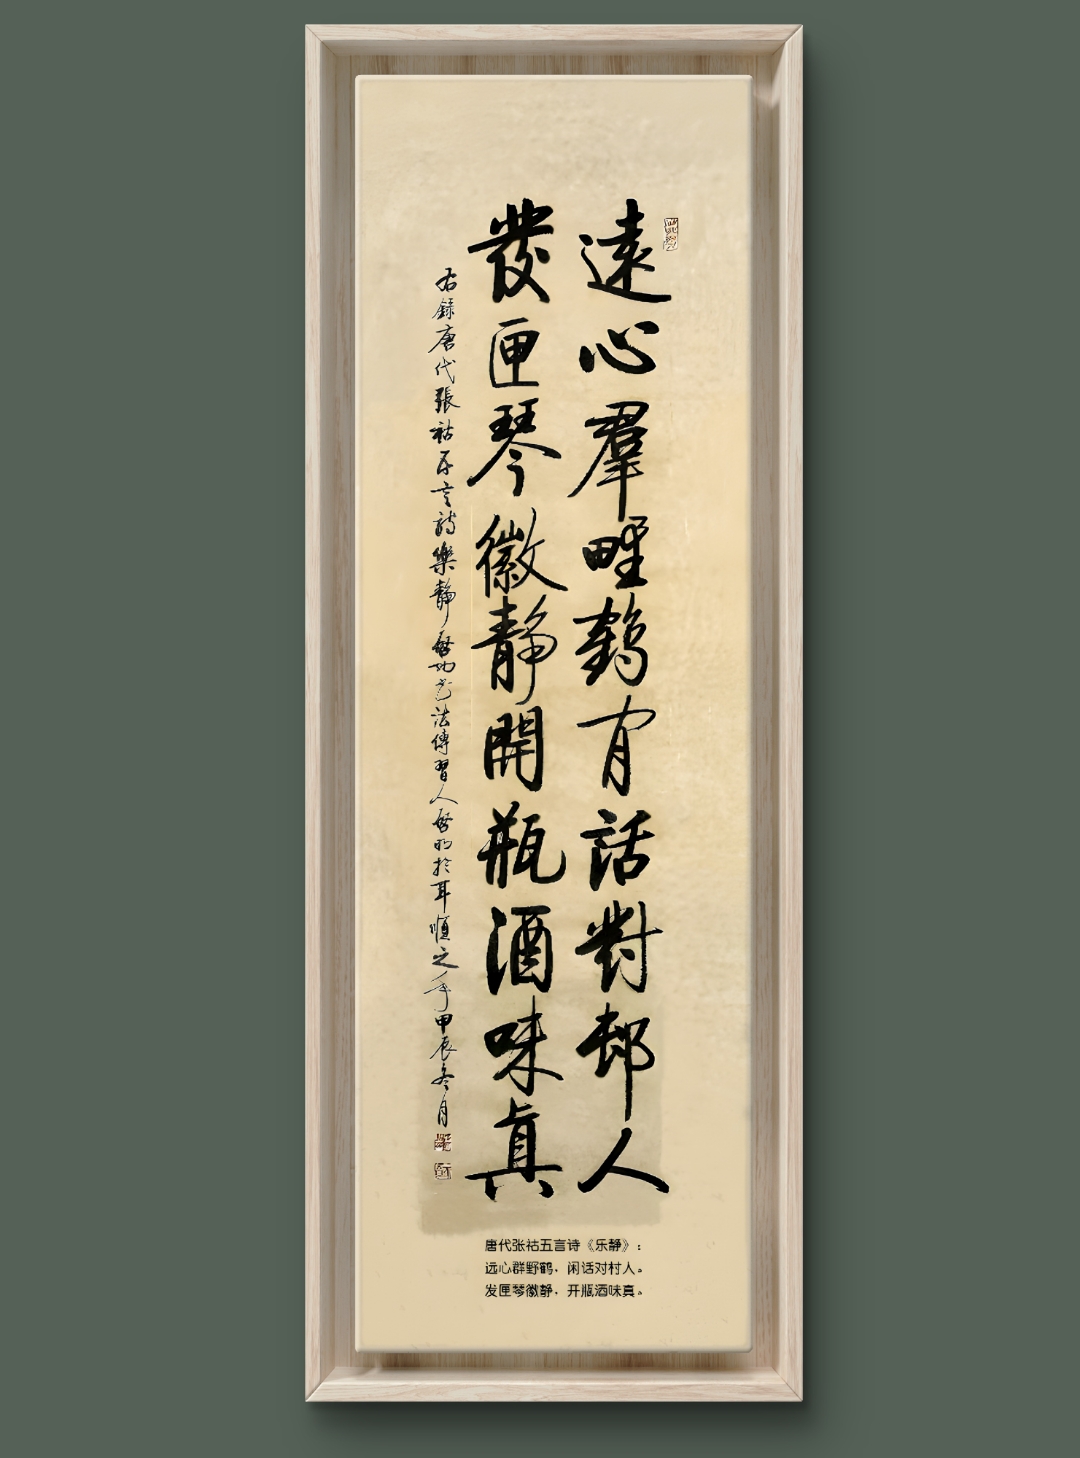 遠心羣野鶴有話對邨人
發匣琴徽静開瓶酒味真
右錄唐代張祜五言詩樂静啓功書法傳習人啓明於耳順之年甲辰冬月
唐代张祜五言诗《乐静》:
远心群野鹤,闲话对村人。
发匣琴徽静,开瓶酒味真。